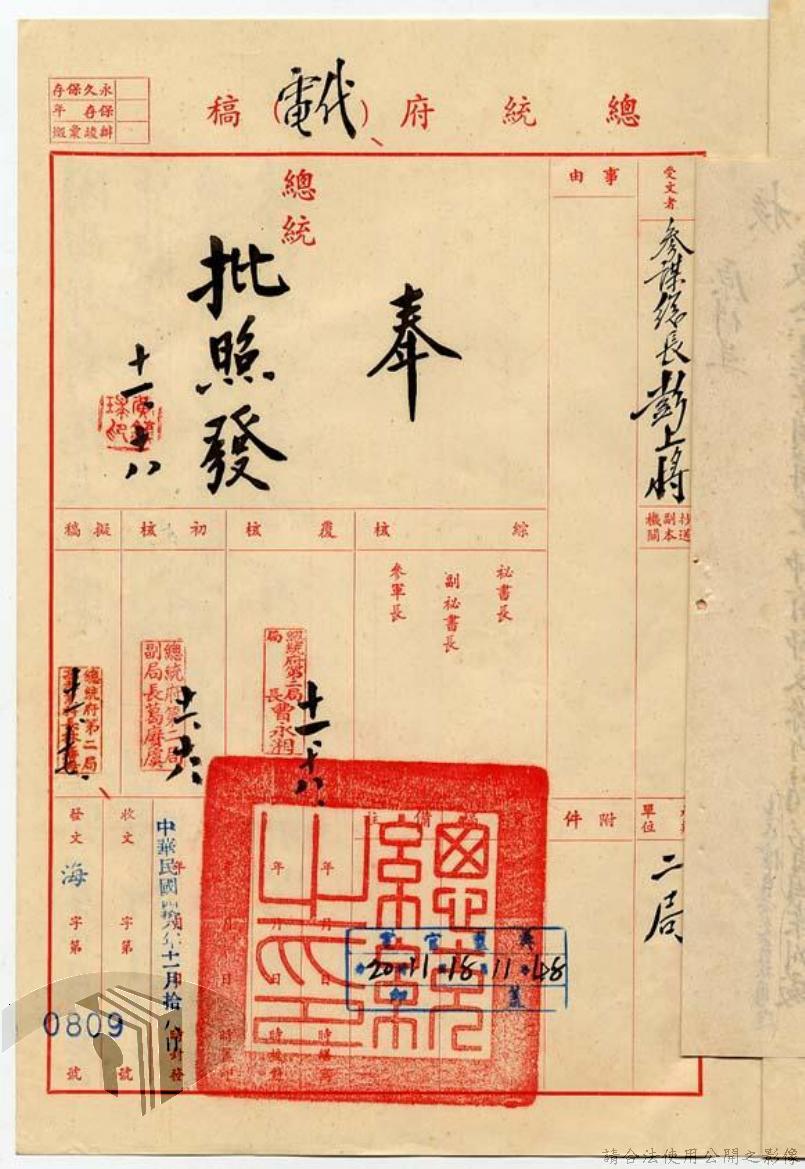 總統府(代電)稿
永久保存
保存年
受文者
參謀總長彭上將
抄送副本機關
事由
總統
奉
批照發
十一、十八
綜核
覆核
初核
擬稿
祕書長
副祕書長
參軍長
總統府第二局局長曹永湘
十一、十八
總統府第二局副局長葛
總統府第二局
附件
單位
二局
總統之印
20 11 18 11 48
中華民國四拾八年十一月拾八日
收文字第號
發文海字第0809號
請合法使用公開之影像